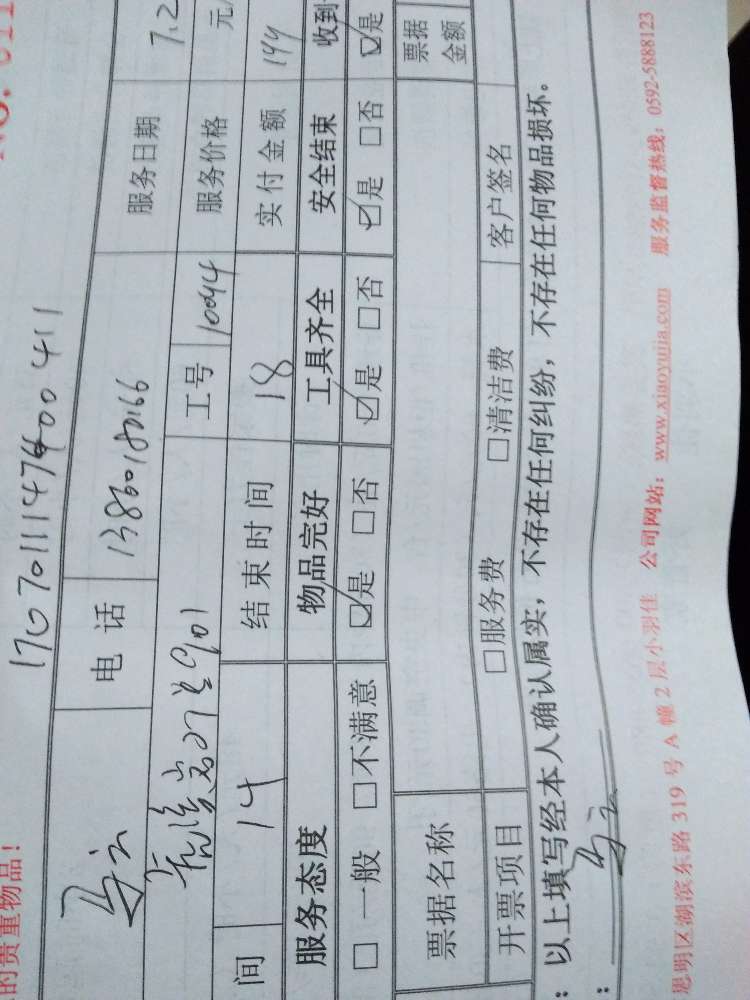 的贵重物品！
NO. 011
170701111474400411
电话 13860180166 服务日期 7.2
901 工号 10094 服务价格 元/
间 14 结束时间 18 实付金额 144
服务态度 物品完好 工具齐全 安全结束 收到
□ 一般 □不满意 ☑是 □否 ☑是 □否 ☑是 □否 ☑是
票据名称 票据金额
开票项目 □服务费 □清洁费 客户签名
：以上填写经本人确认属实，不存在任何纠纷，不存在任何物品损坏。
：
思明区湖滨东路 319 号 A 幢 2 层小羽佳 公司网站：www.xiaoyujia.com 服务监督热线：0592-5888123